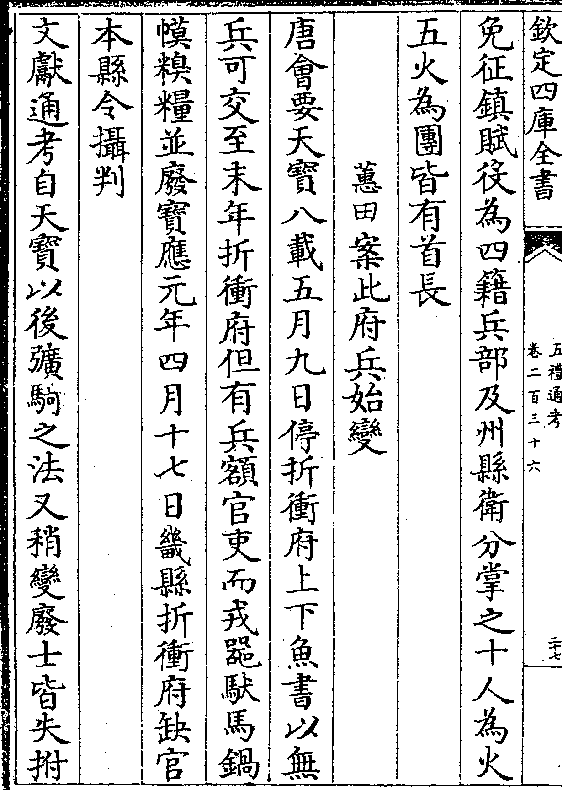 欽定四庫全書
五禮通考
卷二百三十六
三十七
免征鎮賦役為四籍兵部及州縣衛分掌之十人為火
五火為團皆有首長
蕙田案此府兵始變
唐會要天寶八載五月九日停折衝府上下魚書以無
兵可交至末年折衝府但有兵額官吏而戎器馱馬鍋
幙糗糧並廢寶應元年四月十七日畿縣折衝府缺官
本縣令攝判
文獻通考自天寶以後彍騎之法又稍變廢士皆失拊